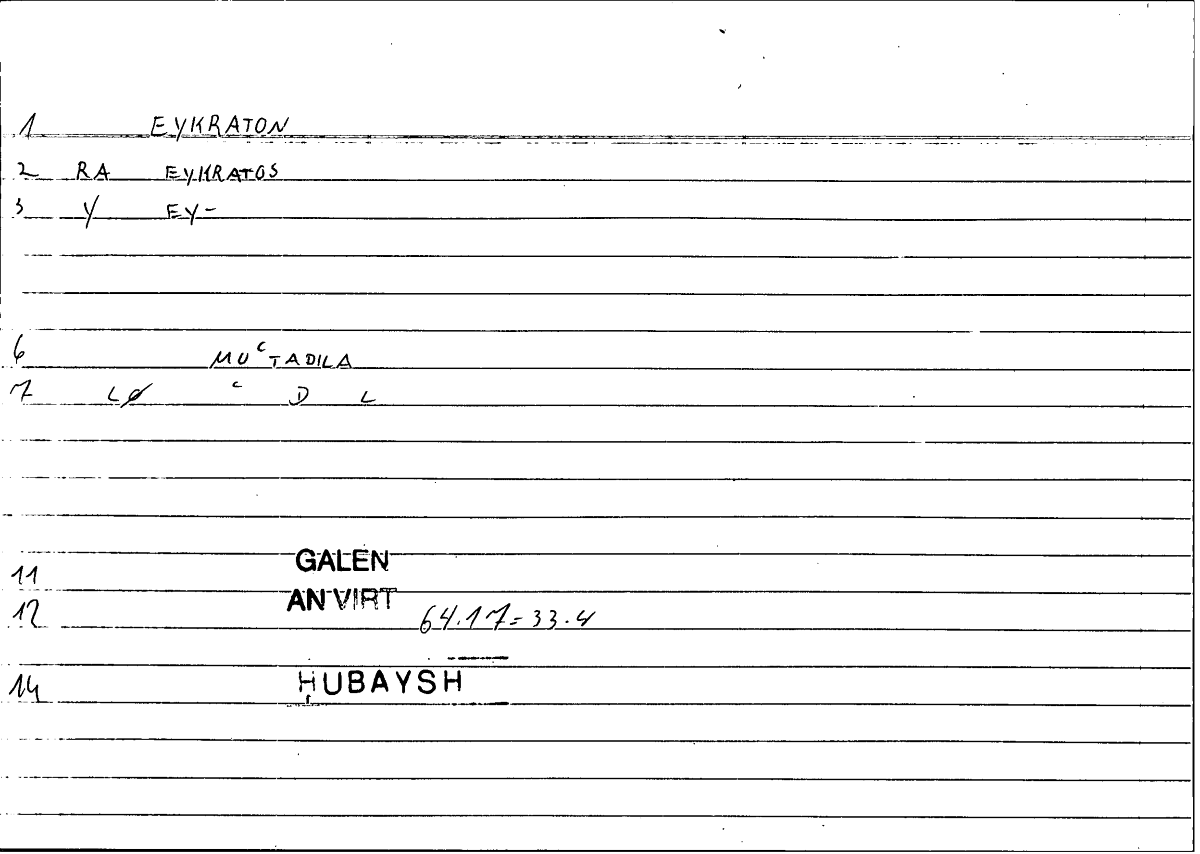 1 EYKRATON
2 RA EYKRATOS
3 Y EY-
6 MUᶜTADILA
7 LØ ᶜ D L
11 GALEN
12 AN VIRT 64.17=33.4
14 ḤUBAYSH